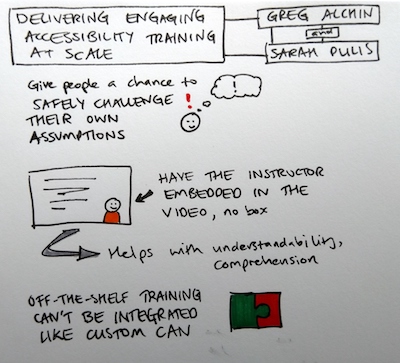 DELIVERING ENGAGING
ACCESSIBILITY TRAINING
AT SCALE
GREG ALCHIN
and
SARAH PULIS
Give people a chance to
SAFELY CHALLENGE !
THEIR OWN
ASSUMPTIONS
!
HAVE THE INSTRUCTOR
EMBEDDED IN THE
VIDEO, no box
Helps with understandability,
comprehension
OFF-THE-SHELF TRAINING
CAN'T BE INTEGRATED
LIKE CUSTOM CAN